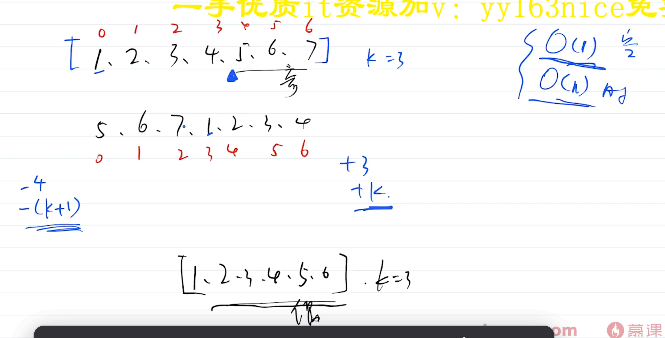 一手优质it资源加v：yyl63nice免
0 1 2 3 4 5 6
[1、2、3、4、5、6、7] k=3
O(1)
O(n)
5、6、7、1、2、3、4
0 1 2 3 4 5 6
-4
-(k+1)
+3
+k
[1、2、3、4、5、6]、k=3
om 慕课